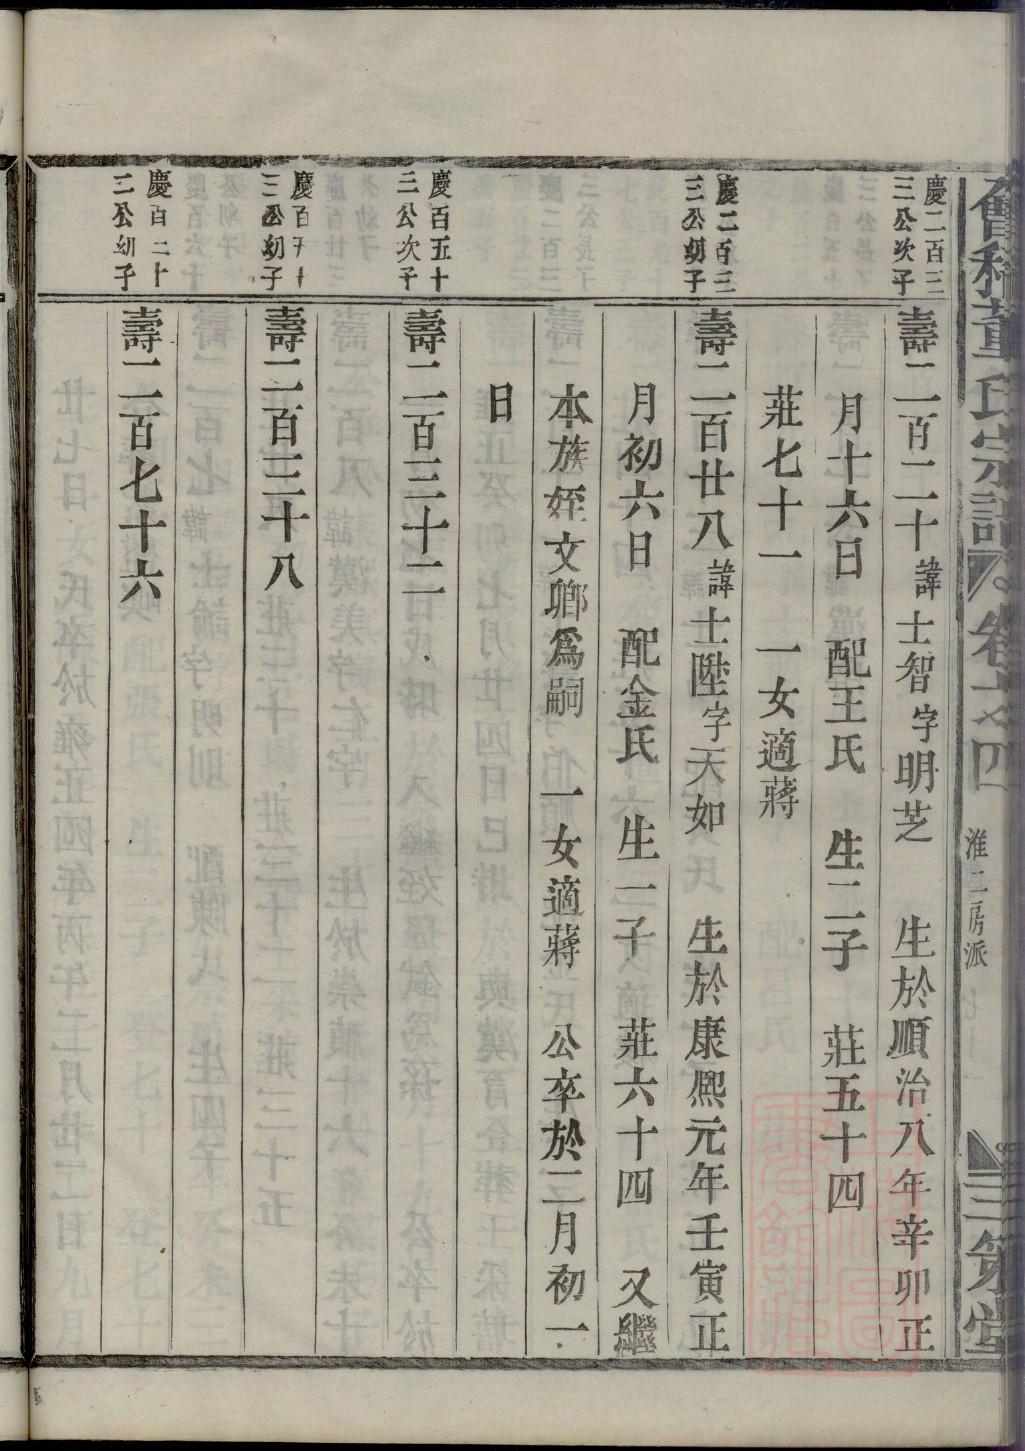 會稽董氏宗譜 卷六之四 淮二房派 三策堂
慶二百三
三公次子
壽二百二十諱士智字明芝 生於順治八年辛卯正
月十六日 配王氏 生二子 莊五十四
莊七十一 一女適蔣
慶二百三
三公幼子
壽二百廿八諱士陞字天如 生於康熙元年壬寅正
月初六日 配金氏 生一子 莊六十四 又繼
本族姪文鄉爲嗣 一女適蔣 公卒於二月初一
日
慶百五十
三公次子
壽二百三十二
慶百五十
三公幼子
壽二百三十八
慶百二十
二公幼子
壽二百七十六